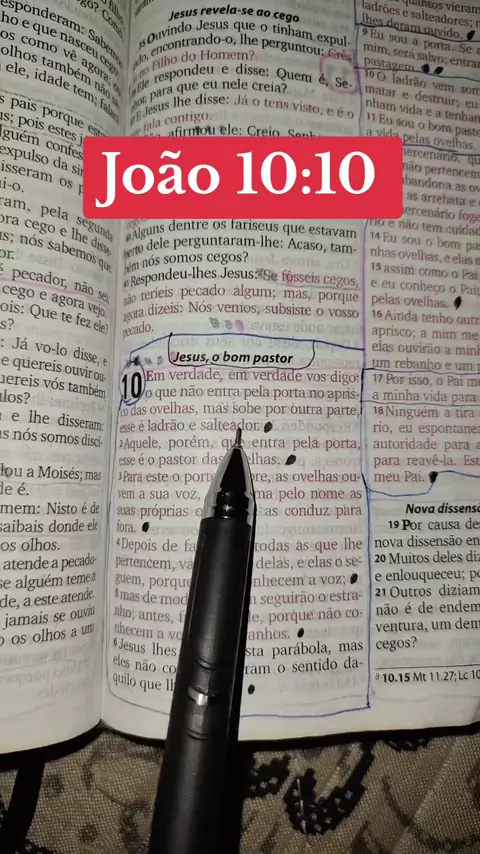 João 10:10
esponderam: Sabemos
ho e que nasceu cego
os como vê agora; o
olhos também não
ele, idade tem; fal
pais porque est
pois estes j
lguém confes
expulso da sin
disseram os p
ai-o.
ram, pela segunda
ora cego e lhe disse
us; nós sabemos que
é pecador, não sei
cego e agora vejo.
ois: Que te fez ele?
s?
Já vo-lo disse, e
e quereis ouvir ou-
uereis vós também
ulos?
e lhe disseram:
as nós somos discí-
lou a Moisés; mas
de é.
mem: Nisto é de
saibais donde ele
os olhos.
atende a pecado-
se alguém teme a
de, a este atende.
jamais se ouviu
o os olhos a um
Jesus revela-se ao cego
35 Ouvindo Jesus que o tinham expul-
do, encontrando-o, lhe perguntou: Crês
no Filho do Homem?
Ele respondeu e disse: Quem é, Se-
hor, para que eu nele creia?
E Jesus lhe disse: Já o tens visto, e é o
fala contigo.
afirmou ele: Creio, Senh
Alguns dentre os fariseus que estavam
perto dele perguntaram-lhe: Acaso, tam-
bém nós somos cegos?
41 Respondeu-lhes Jesus: Se fôsseis cegos,
não teríeis pecado algum; mas, porque
agora dizeis: Nós vemos, subsiste o vosso
pecado.
Jesus, o bom pastor
10 Em verdade, em verdade vos digo:
o que não entra pela porta no apris-
co das ovelhas, mas sobe por outra parte,
esse é ladrão e salteador.
2 Aquele, porém, que entra pela porta,
esse é o pastor das ovelhas.
3 Para este o porte re, as ovelhas ou-
vem a sua voz, ma pelo nome as
suas próprias o as conduz para
fora.
4 Depois de fa todas as que lhe
pertencem, vá delas, e elas o se-
guem, porque nhecem a voz;
5 mas de mod seguirão o estra-
nho; antes, f porque não co-
nhecem a vo anhos.
6 Jesus lhes sta parábola, mas
eles não co ram o sentido da-
quilo que lh
quantos vieram
ladrões e salteadores; m
lhes deram ouvido.
9 Eu sou a porta. Se a
mim, será salvo; entra
pastagem.
10 O ladrão vem som
matar e destruir; eu
nham vida e a tenham
11 Eu sou o bom pasto
a vida pelas ovelhas.
ercenário, qu
não pertencem
bandona as ov
as arrebata e d
ercenário foge
rio e não tem cuidad
14 Eu sou o bom pa
nhas ovelhas, e elas m
15 assim como o Pai
e eu conheço o Pai;
pelas ovelhas.
16 Ainda tenho outra
aprisco; a mim me
elas ouvirão a minh
um rebanho e um p
17 Por isso, o Pai me
a minha vida para
18 Ninguém a tira d
rio, eu espontanea
autoridade para a
para reavê-la. Est
meu Pai.
Nova dissensã
19 Por causa des
nova dissensão en
20 Muitos deles di
e enlouqueceu; po
21 Outros diziam
não é de endem
ventura, um dem
cegos?
10.15 Mt 11.27; Lc 10